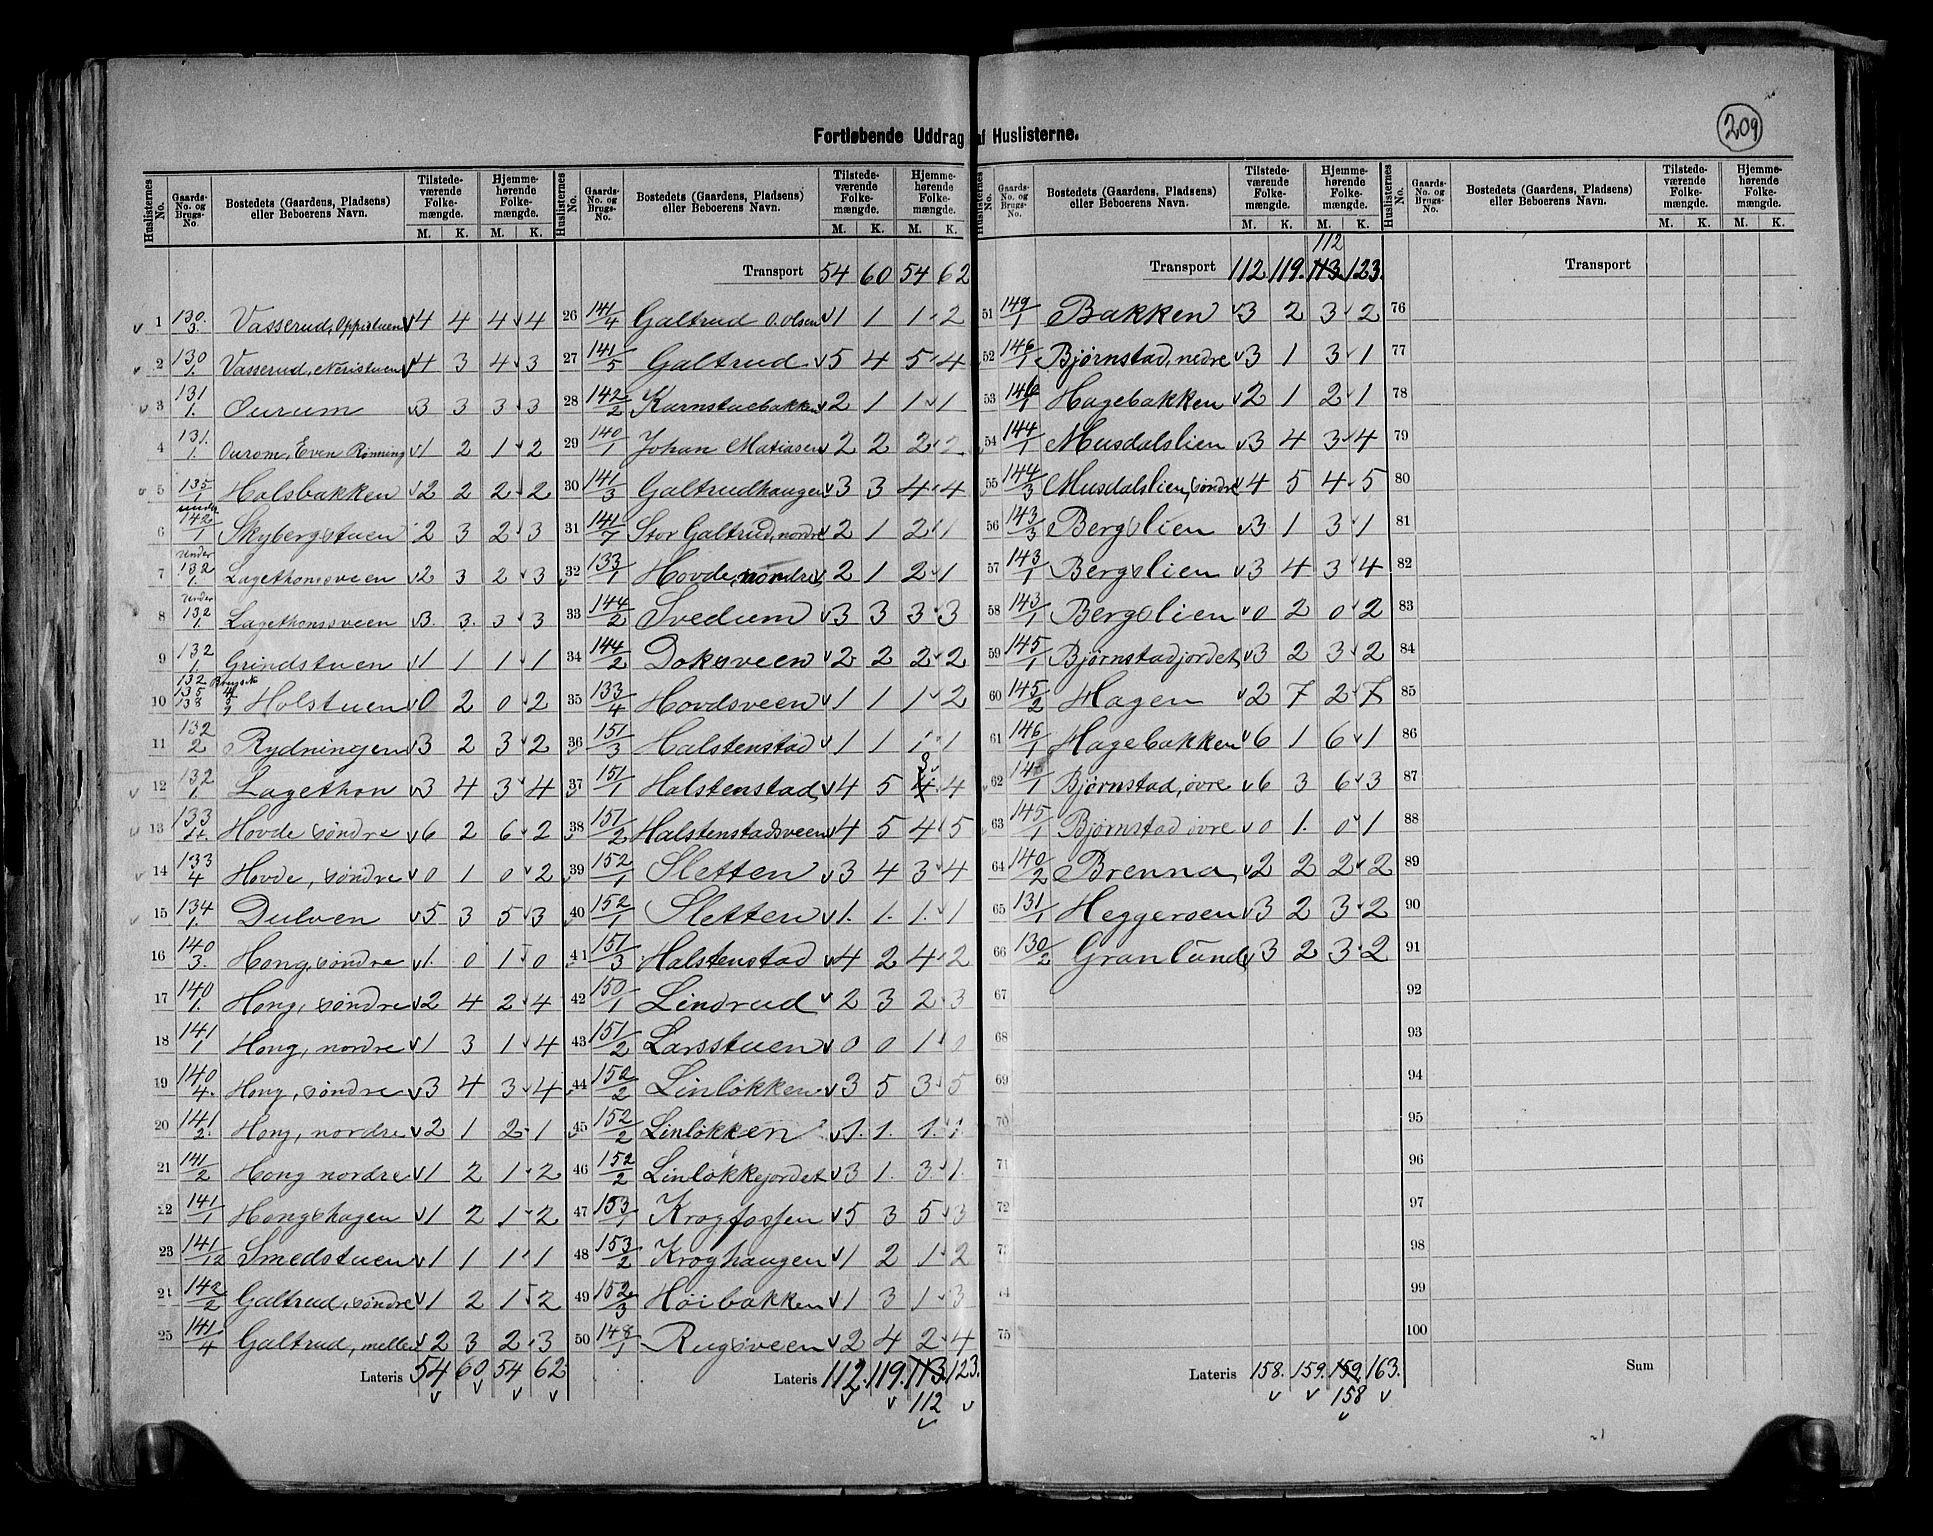 209
Fortløbende Uddrag af Huslisterne.
Huslisternes No. Gaards-No. og Brugs-No. Bostedets (Gaardens, Pladsens) eller Beboerens Navn. Tilstedeværende Folkemængde. M. K. Hjemmehørende Folkemængde. M. K.
1 130/3. Vasserud, Oppistuen 4 4 4 4
2 130/1. Vasserud, Nesistuen 4 3 4 3
3 131/1. Ourum 3 3 3 3
4 131./1. Ourom, Even Rønning 1 2 1 2
5 135/1 Holsbakken 2 2 2 2
6 under 142/1 Skybergstuen 2 3 2 3
7 under 132/1. Lagethonsveen 2 3 2 3
8 under 132/1. Lagethonsveen 3. 3. 3 3
9 132/1 Grindstuen 1 1 1 1
10 132 135 138 Holstuen 0 2 0 2
11 132/2 Rydningen 3 2 3 2
12 132/1 Lagethon 3 4 3 4
13 133/4. Hovde søndre 6 2 6 2
14 133/4 Hovde, søndre 0 1 0 2
15 134/1. Dulven 5 3 5 3
16 140/3. Hong, søndre 1. 0 1 0
17 140/1. Hong, søndre 2 4 2 4
18 141/1 Hong, nordre 1 3 1 4
19 140/4. Hong, søndre 3 4 3 4
20 141/2. Hong, nordre 2 1 2 1
21 141/2 Hong nordre 1 2 1 2
22 141/1 Hongshagen 1 2 1 2
23 141/12 Smedstuen 1 1 1 1
24 142/2 Galtrud, søndre 1 2 1 2
25 141/4 Galtrud, mellem 2 3 2 3
Lateris 54 60 54 62
Transport 54 60 54 62
26 141/4 Galtrud O. Olsen 1 1 1 2
27 141/5 Galtrud 5 4 5 4
28 142/2 Karnstuebakken 2 1 1 1
29 140/1 Johan Matiasen 2 2 2 2
30 141/3 Galtrudhaugen 3 3 4 4
31 141/7 Stor Galtrud, nordre 2 1 2 1
32 133/1 Hovde, nordre 2 1 2 1
33 144/2 Svedum 3 3 3 3
34 144/2 Doksveen 2 2 2 2
35 133/4 Hovdsveen 1 1 1 2
36 151/3 Halstenstad 1 1 1 1
37 151/1 Halstenstad, 4 5 4 3 4
38 151/2 Halstenstadsveen 4 5 4 5
39 152/1 Sletten 3 4 3 4
40 152/1 Sletten 1. 1. 1. 1
41 151/3 Halstenstad 4 2 4 2
42 150/1 Lindrud 2 3 2 3
43 151/2 Larsstuen 0 0 1 0
44 152/2 Linløkken 3 5 3 5
45 152/2 Linløkken 1. 1. 1. 1.
46 152/2 Linløkkejordet 3 1. 3. 1.
47 153/1 Krogfossen 5 3 5 3
48 153/2 Kroghaugen 1 2 1 2
49 152/3 Høibakken 1 3 1 3
50 148/1 Rugsveen 2 4 2 4
Lateris 112. 119. 113. 123.
112
112
Transport 112 119. 113. 123.
51 149/1 Bakken 3 2 3 2
52 146/1 Bjørnstad, nedre 3 1 3 1
53 146/1 Hagebakken 2 1 2 1
54 144/1 Musdalslien 3 4 3 4
55 144/3 Musdalslien, søndre 4 5 4 5
56 143/3 Bergslien 3 1 3 1
57 143/1 Bergslien 3 4 3 4
58 143/1 Bergslien 0 2 0 2
59 145/1 Bjørnstadjordet, 3 2 3 2
60 145/2 Hagen 2 7 2 7
61 146/1 Hagebakken 6 1 6 1
62 Bjørnstad, øvre 6 3 6 3
63 145/1 Bjørnstad øvre 0 1. 0 1
64 140/2 Brenna, 2 2 2 2
65 131/1 Heggersen 3 2 3 2
66 130/2 Granlund, 3 2 3 2
67
68
69
70
71
72
73
74
75
Lateris 158. 159. 159. 163.
158
Transport
76
77
78
79
80
81
82
83
84
85
86
87
88
89
90
91
92
93
94
95
96
97
98
99
100
Sum